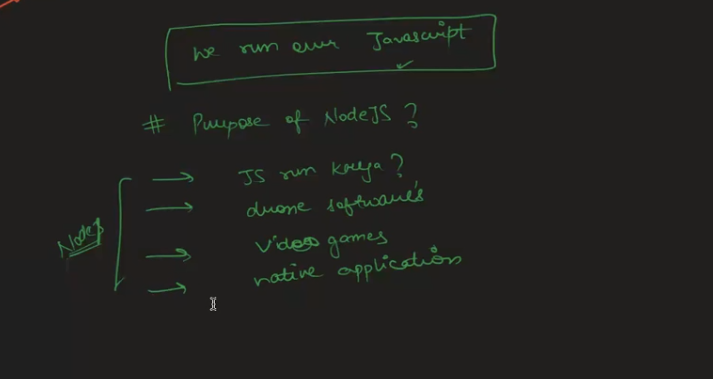 we run our Javascript
# Purpose of NodeJS ?
→ JS run kruya ?
→ drone software's
NodeJS
→ video games
→ native application